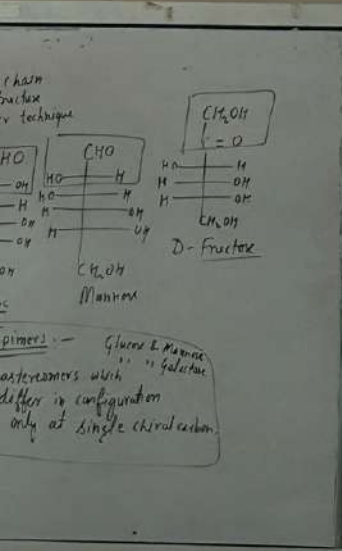 chain
ructure
r technique
HO
OH
H
OH
OH
OH
CHO
HO H
HO H
H OH
H OH
CH2OH
Mannose
CH2OH
C = O
HO H
H OH
H OH
CH2OH
D - Fructose
pimers :- Glucose & Mannose
" " Galactose
astereomers which
differ in configuration
only at single chiral carbon.